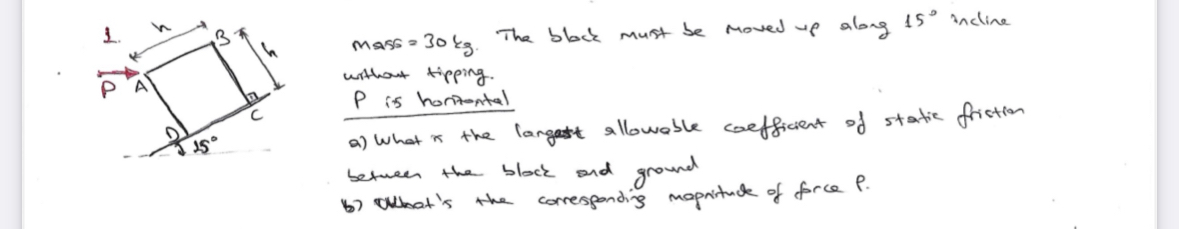 1.
h
B
h
P A
D
C
15°
mass = 30 kg. The block must be moved up along 15° incline
without tipping.
P is horizontal
a) What is the largest allowable coefficient of static friction
between the block and ground
b) What's the corresponding magnitude of force P.